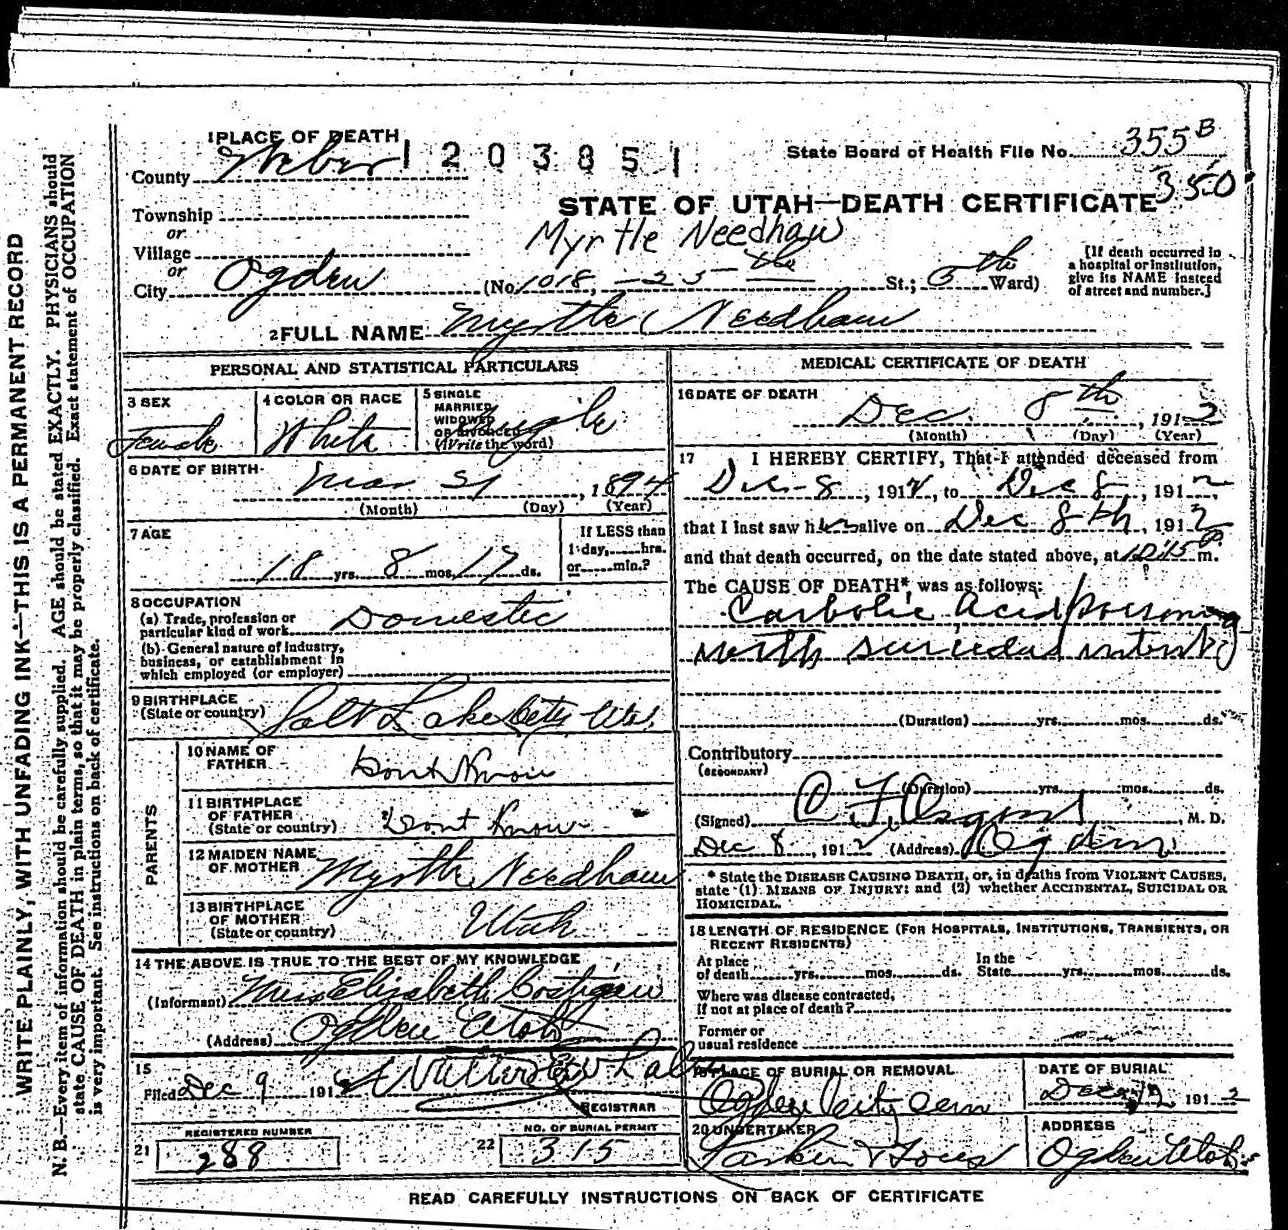 WRITE PLAINLY, WITH UNFADING INK—THIS IS A PERMANENT RECORD
N. B.—Every item of information should be carefully supplied. AGE should be stated EXACTLY. PHYSICIANS should
state CAUSE OF DEATH in plain terms, so that it may be properly classified. Exact statement of OCCUPATION
is very important. See instructions on back of certificate.
1 PLACE OF DEATH
1203851
State Board of Health File No. 355 B
350
County Weber
STATE OF UTAH—DEATH CERTIFICATE
Township
or
Myrtle Needham
Village
or
City Ogden (No. 1018, — 25th St.; 5th Ward)
[If death occurred in
a hospital or institution,
give its NAME instead
of street and number.]
2 FULL NAME Myrtle Needham
PERSONAL AND STATISTICAL PARTICULARS
3 SEX
Female
4 COLOR OR RACE
White
5 SINGLE
MARRIED
WIDOWED
OR DIVORCED
(Write the word)
Single
6 DATE OF BIRTH
Mar 21, 1894
(Month) (Day) (Year)
7 AGE
18 yrs. 8 mos. 17 ds.
If LESS than
1 day, hrs.
or min.?
8 OCCUPATION
(a) Trade, profession or
particular kind of work Domestic
(b) General nature of industry,
business, or establishment in
which employed (or employer)
9 BIRTHPLACE
(State or country) Salt Lake City Ut.
PARENTS
10 NAME OF
FATHER Dont Know
11 BIRTHPLACE
OF FATHER
(State or country) Dont Know
12 MAIDEN NAME
OF MOTHER Myrtle Needham
13 BIRTHPLACE
OF MOTHER
(State or country) Utah
14 THE ABOVE IS TRUE TO THE BEST OF MY KNOWLEDGE
(Informant) Elizabeth Costigan
(Address) Ogden Utah
15
Filed Dec 9 1912
REGISTRAR
21 REGISTERED NUMBER
288
22 NO. OF BURIAL PERMIT
315
MEDICAL CERTIFICATE OF DEATH
16 DATE OF DEATH
Dec. 8th, 1912
(Month) (Day) (Year)
17 I HEREBY CERTIFY, That I attended deceased from
Dec 8, 1912, to Dec 8, 1912,
that I last saw her alive on Dec 8th, 1912
and that death occurred, on the date stated above, at 10:15 P. m.
The CAUSE OF DEATH*, was as follows:
Carbolic Acid Poisoning
with suicidal intent
(Duration) yrs. mos. ds.
Contributory
(SECONDARY)
(Duration) yrs. mos. ds.
(Signed) , M. D.
Dec 8, 1912 (Address) Ogden
* State the DISEASE CAUSING DEATH, or, in deaths from VIOLENT CAUSES,
state (1) MEANS OF INJURY; and (2) whether ACCIDENTAL, SUICIDAL OR
HOMICIDAL.
18 LENGTH OF RESIDENCE (FOR HOSPITALS, INSTITUTIONS, TRANSIENTS, OR
RECENT RESIDENTS)
At place
of death yrs. mos. ds.
In the
State yrs. mos. ds.
Where was disease contracted,
if not at place of death?
Former or
usual residence
PLACE OF BURIAL OR REMOVAL
Ogden City Cem
DATE OF BURIAL
Dec 1912
20 UNDERTAKER
Larkin & Sons
ADDRESS
Ogden Utah
READ CAREFULLY INSTRUCTIONS ON BACK OF CERTIFICATE